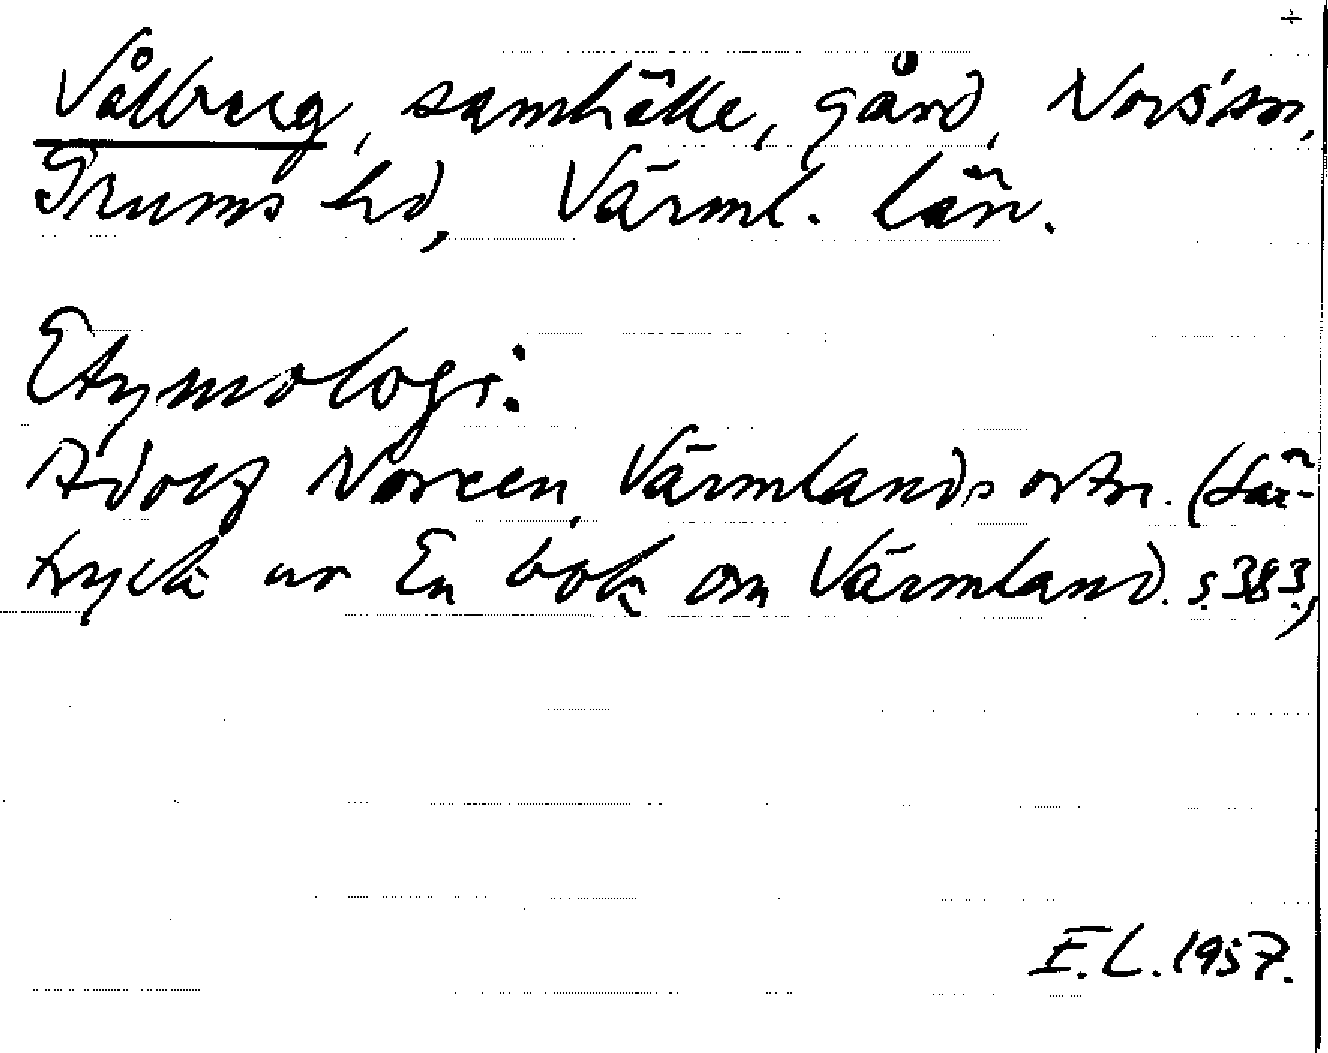 ÷
Vålberg, samhälle, gård, Nors sn,
Grums hd, Värml. län.
Etymologi:
Adolf Noreen, Värmlands ortn. (Sär-
tryck ur En bok om Värmland. s. 383,)
E.L. 1957.